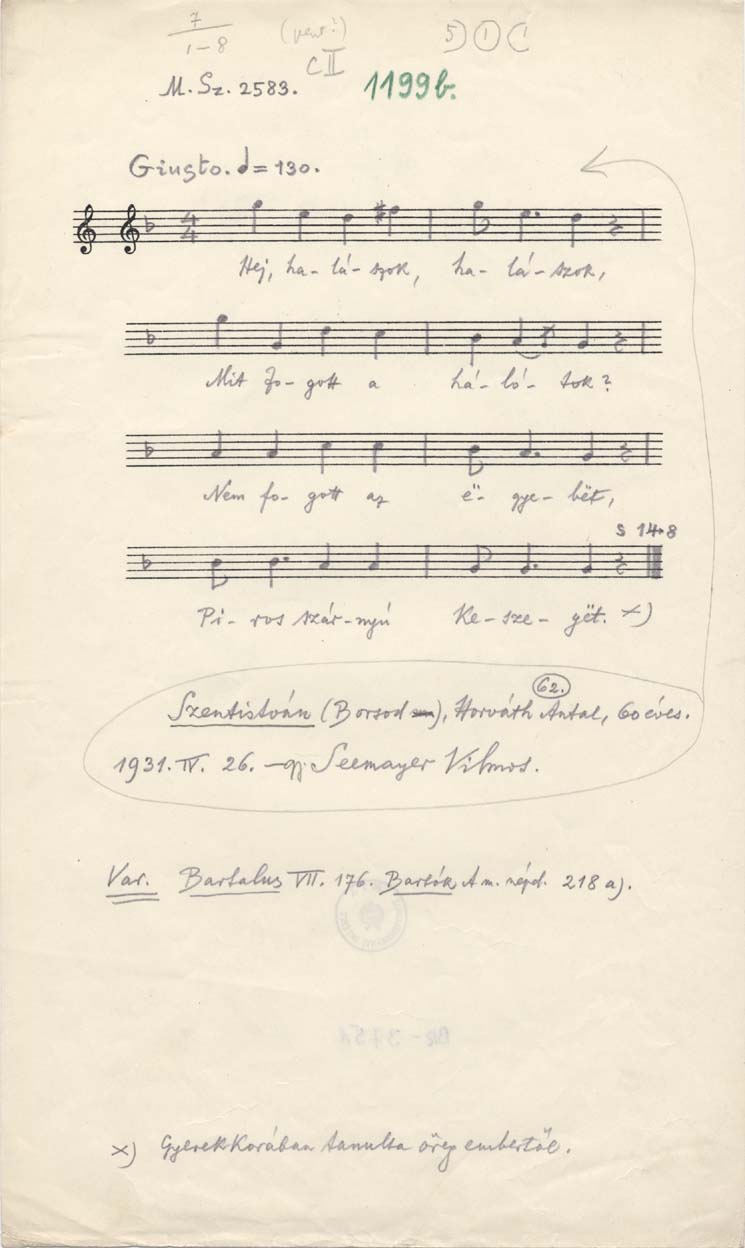 7
1-8
5) (1) (
C II
M. Sz. 2583.
1199b.
Giusto. = 130.
4
4
Hej, ha- lá- szok, ha- lá- szok,
Mit fo- gott a há- ló- tok?
Nem fo- gott az ë- gye- bët,
S 14.8
Pi- ros szár- nyú Ke- sze- gët. x)
62.
Szentistván (Borsod), Horváth Antal, 60 éves.
1931. IV. 26. – gy. Seemayer Vilmos.
Var. Bartalus VII. 176. Bartók A m. népd. 218 a).
x) Gyerekkorában tanulta öreg embertől.